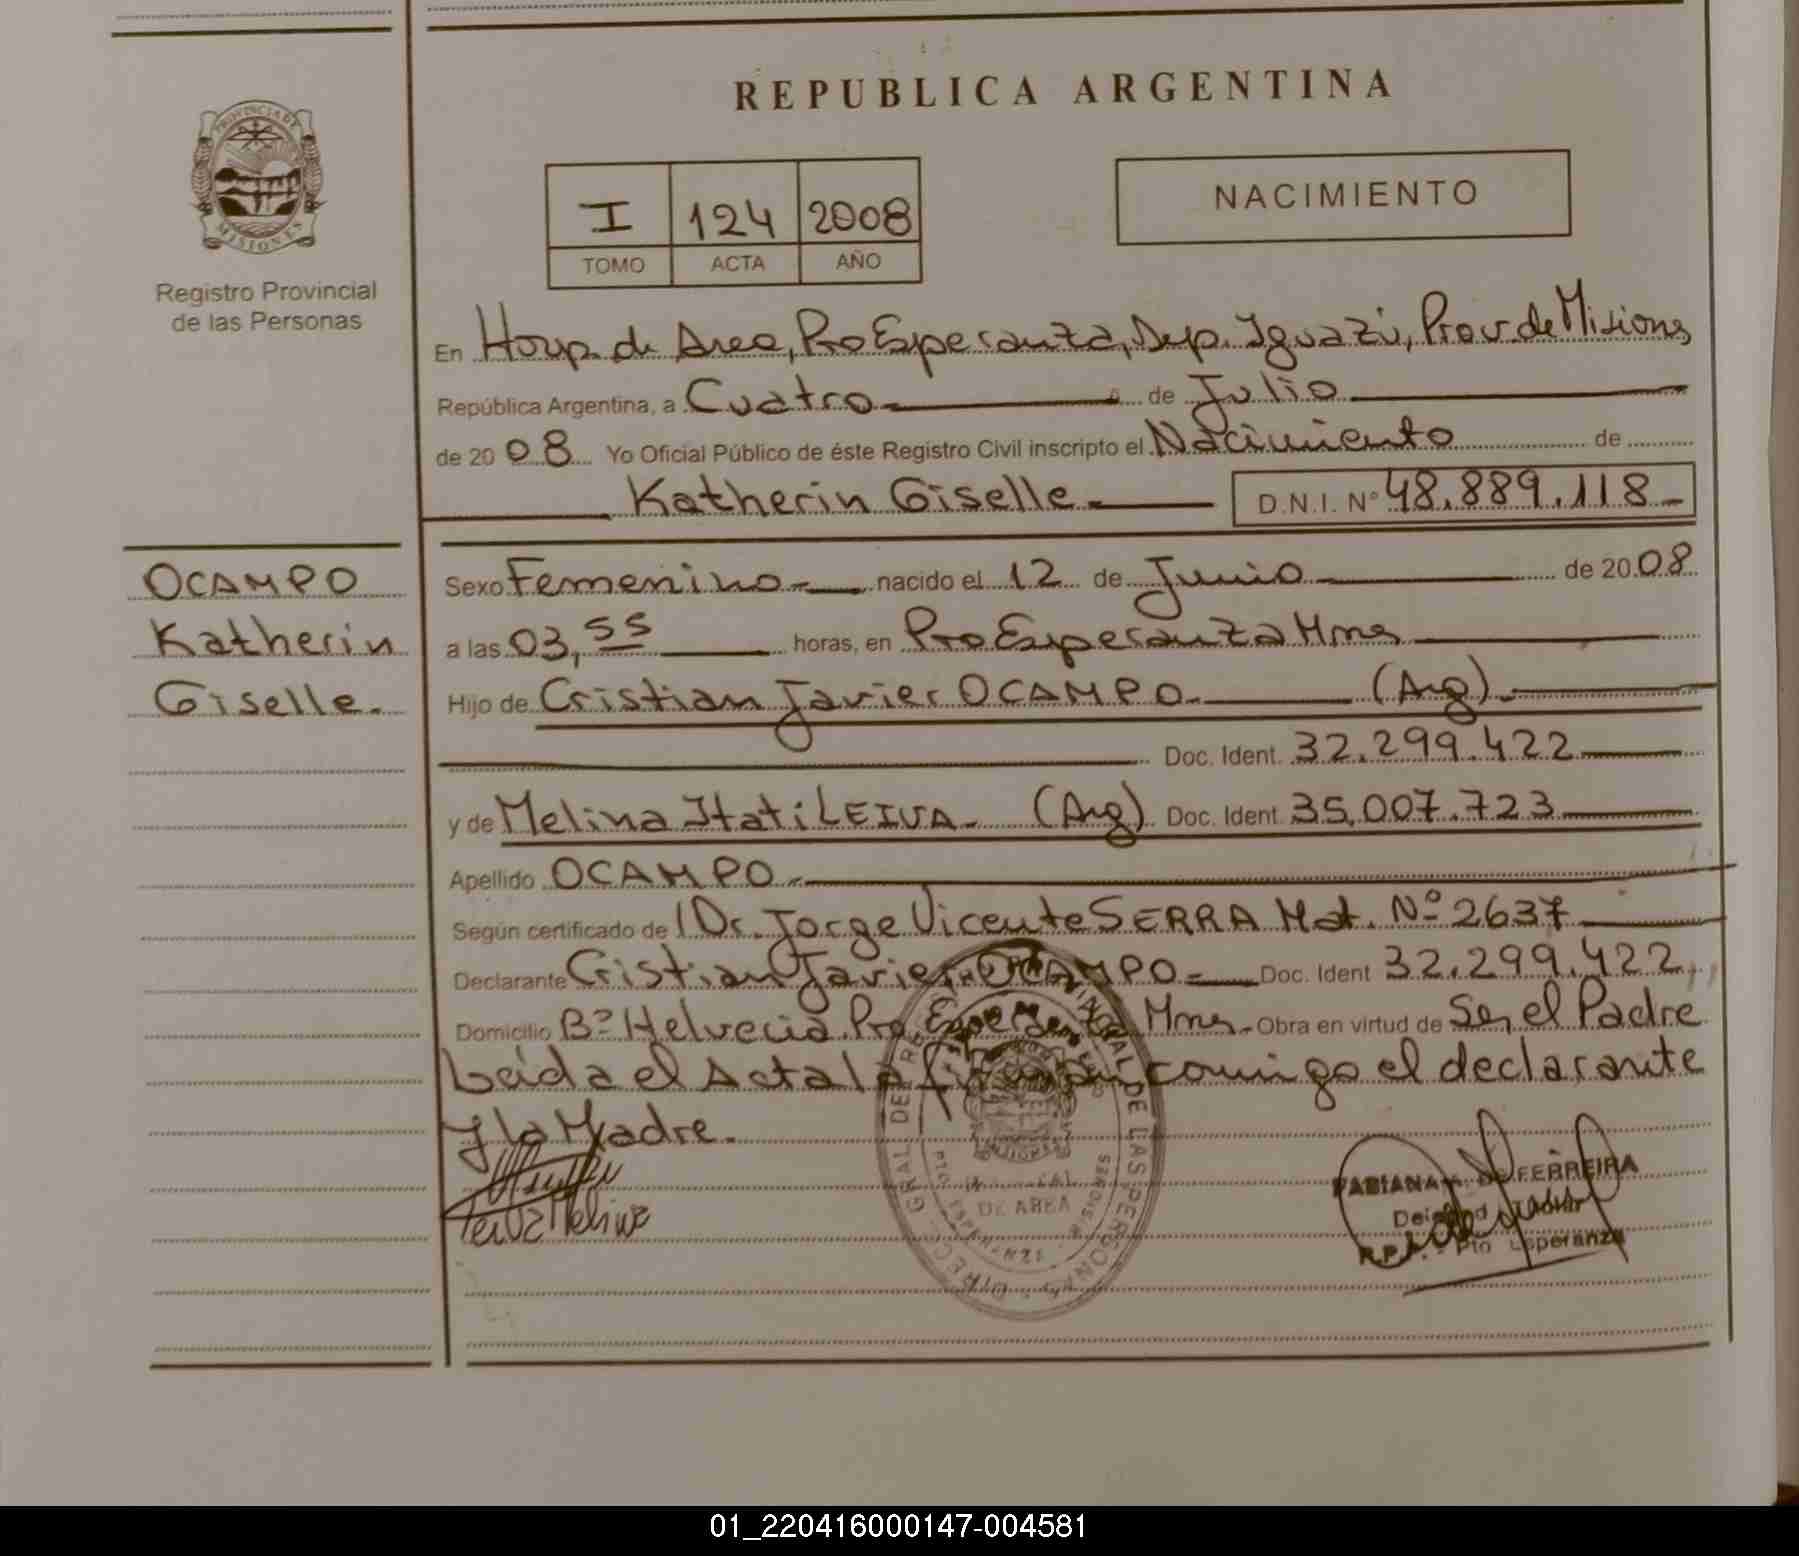 REPUBLICA ARGENTINA
PROVINCIA DE
MISIONES
Registro Provincial
de las Personas
I 124 2008
TOMO ACTA AÑO
NACIMIENTO
En Hosp. de Area, Pto Esperanza, Dep. Iguazú, Prov. de Misiones
República Argentina, a Cuatro de Julio
de 2008 Yo Oficial Público de éste Registro Civil inscripto el Nacimiento de
Katherin Giselle D.N.I. Nº 48.889.118
OCAMPO
Katherin
Giselle.
Sexo Femenino nacido el 12 de Junio de 2008
a las 03,55 horas, en Pto Esperanza Mnes
Hijo de Cristian Javier OCAMPO (Arg)
Doc. Ident. 32.299.422
y de Melina Itati LEIVA (Arg) Doc. Ident. 35.007.723
Apellido OCAMPO
Según certificado de Dr. Jorge Vicente SERRA Mat. Nº 2637
Declarante Cristian Javier OCAMPO Doc. Ident 32.299.422
Domicilio Bº Helvecia Pto Esperanza Mnes Obra en virtud de Ser el Padre
Leida el Acta la firman conmigo el declarante
y la Madre.
Leiva Melina
DE AREA
FABIANA A. DE FERREIRA
R.P.P. - Pto Esperanza
01_220416000147-004581